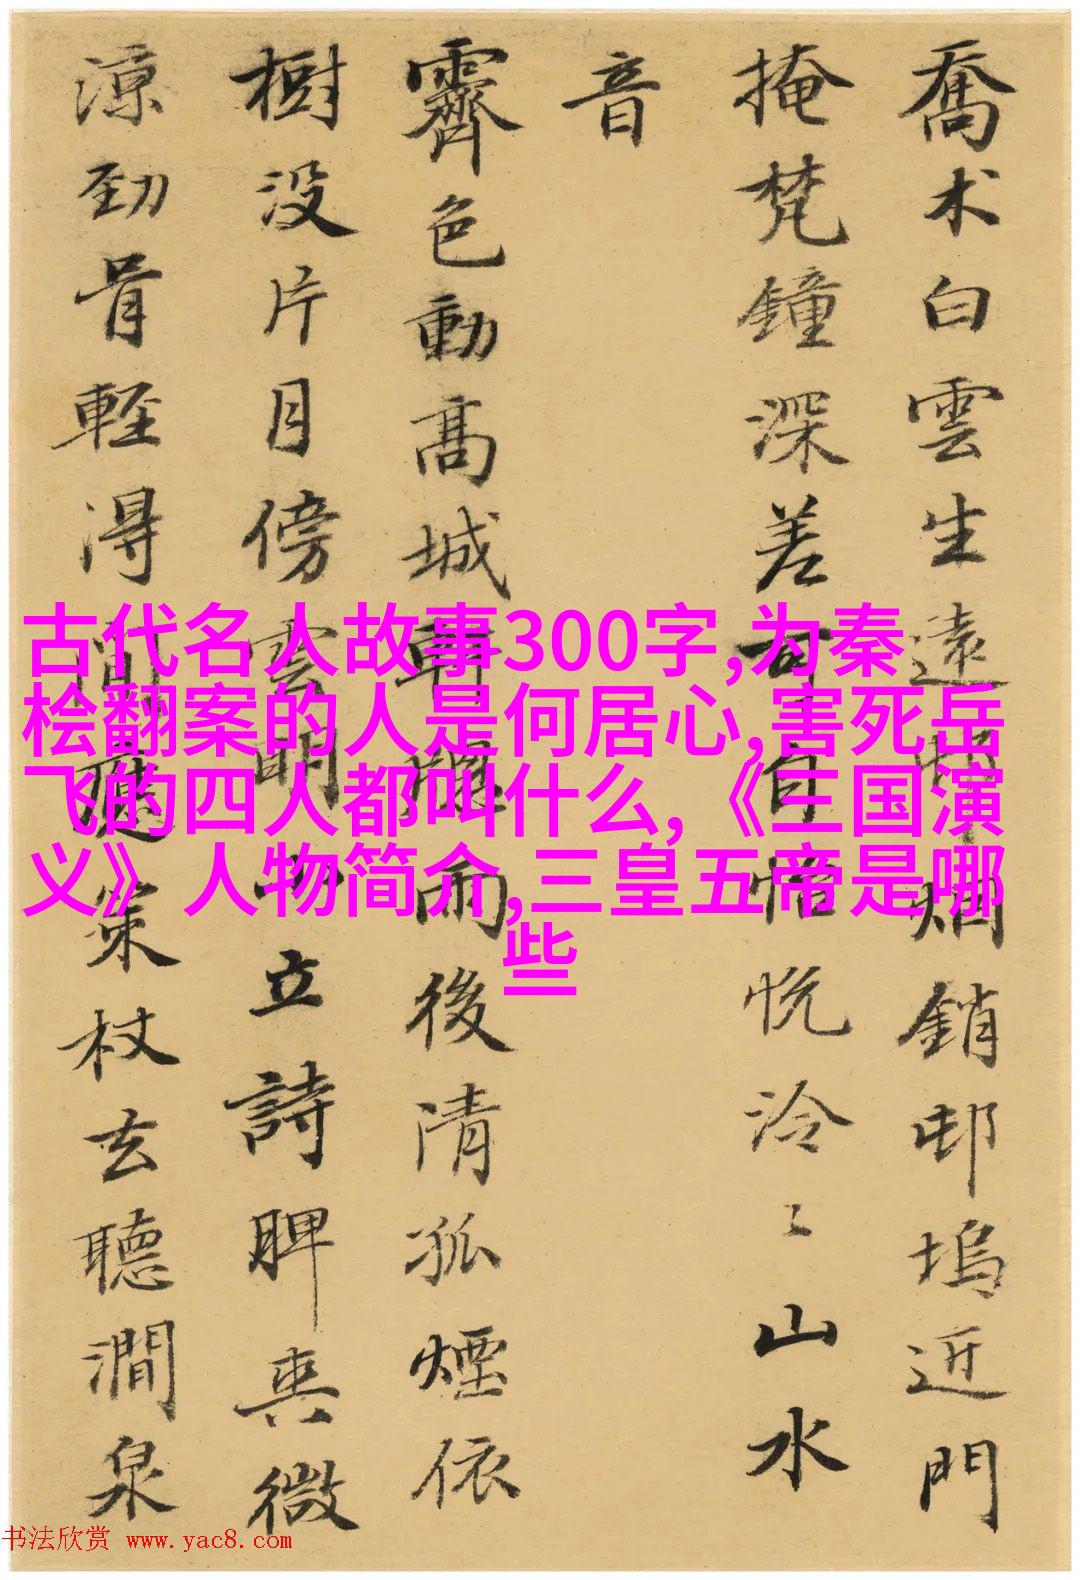 喬木白雲生遠岫烟銷邨塢近門
掩梵鐘深差可自怡悦泠〻山水
音
霽色動高城郭雨後清孤煙依
樹没片月傍雲明立詩脾爽微
涼勁骨輕得策杖去聽澗泉
古代名人故事300字,为秦
桧翻案的人是何居心,害死岳
飞的四人都叫什么,《三国演
义》人物简介,三皇五帝是哪
些
书法欣赏 www.yac8.com